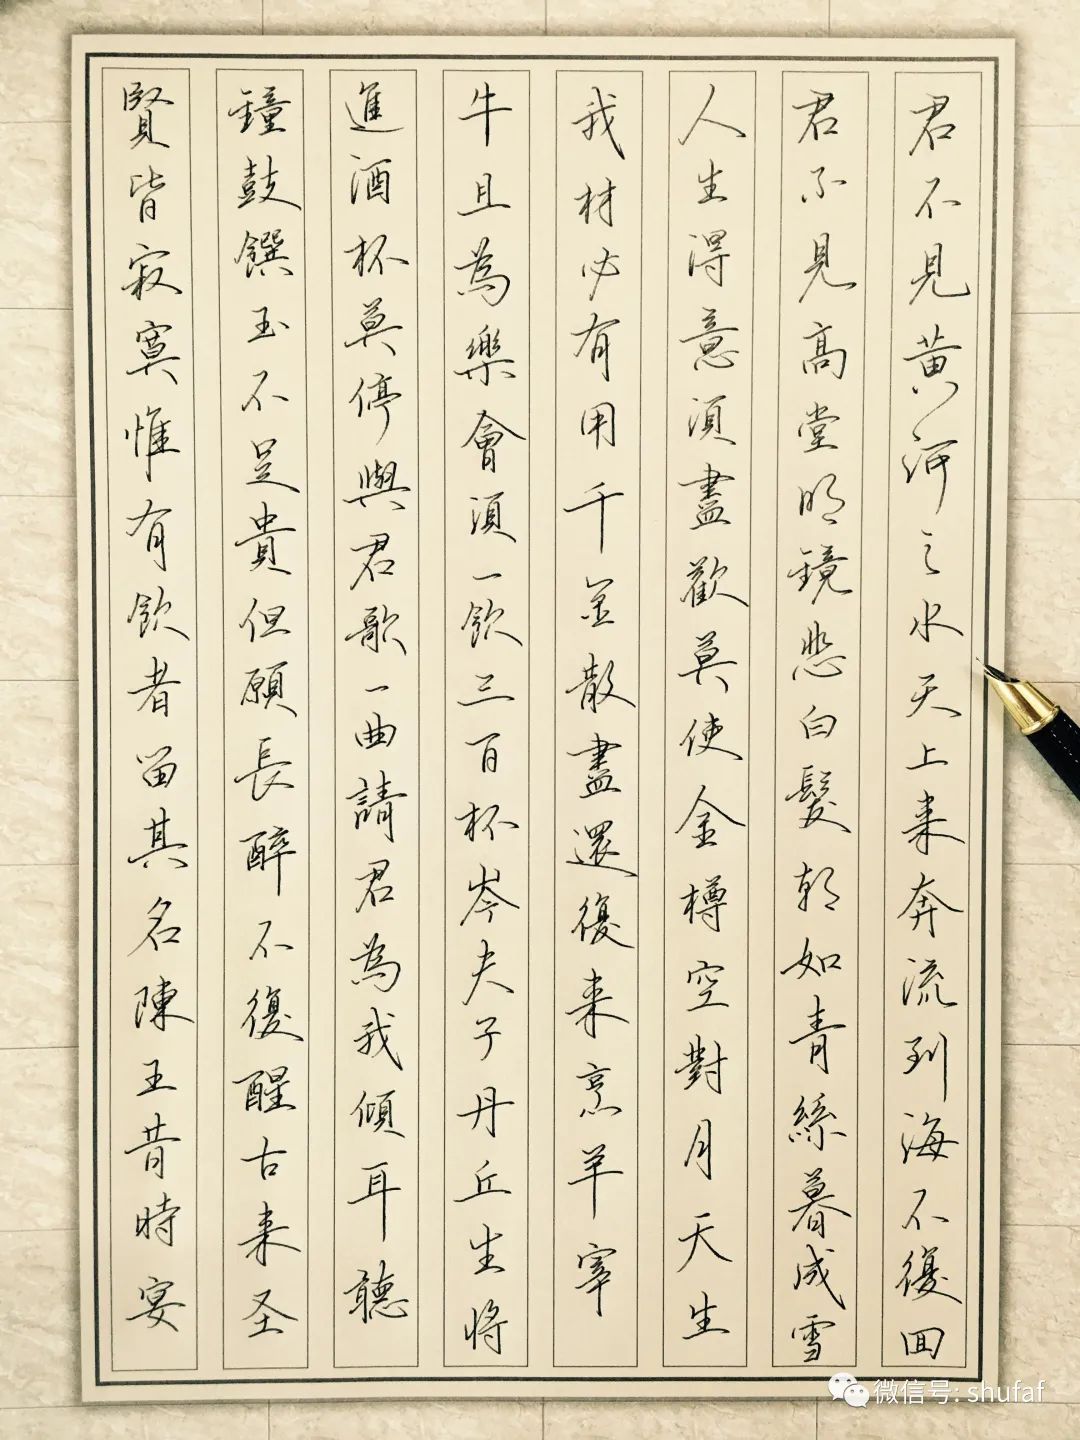 君不見黃河之水天上来奔流到海不復回
君不見高堂明鏡悲白髮朝如青絲暮成雪
人生得意須盡歡莫使金樽空對月天生
我材必有用千金散盡還復来烹羊宰
牛且為樂會須一飲三百杯岑夫子丹丘生將
進酒杯莫停與君歌一曲請君為我傾耳聽
鐘鼓饌玉不足貴但願長醉不復醒古来圣
賢皆寂寞惟有飲者留其名陳王昔時宴
微信号: shufaf